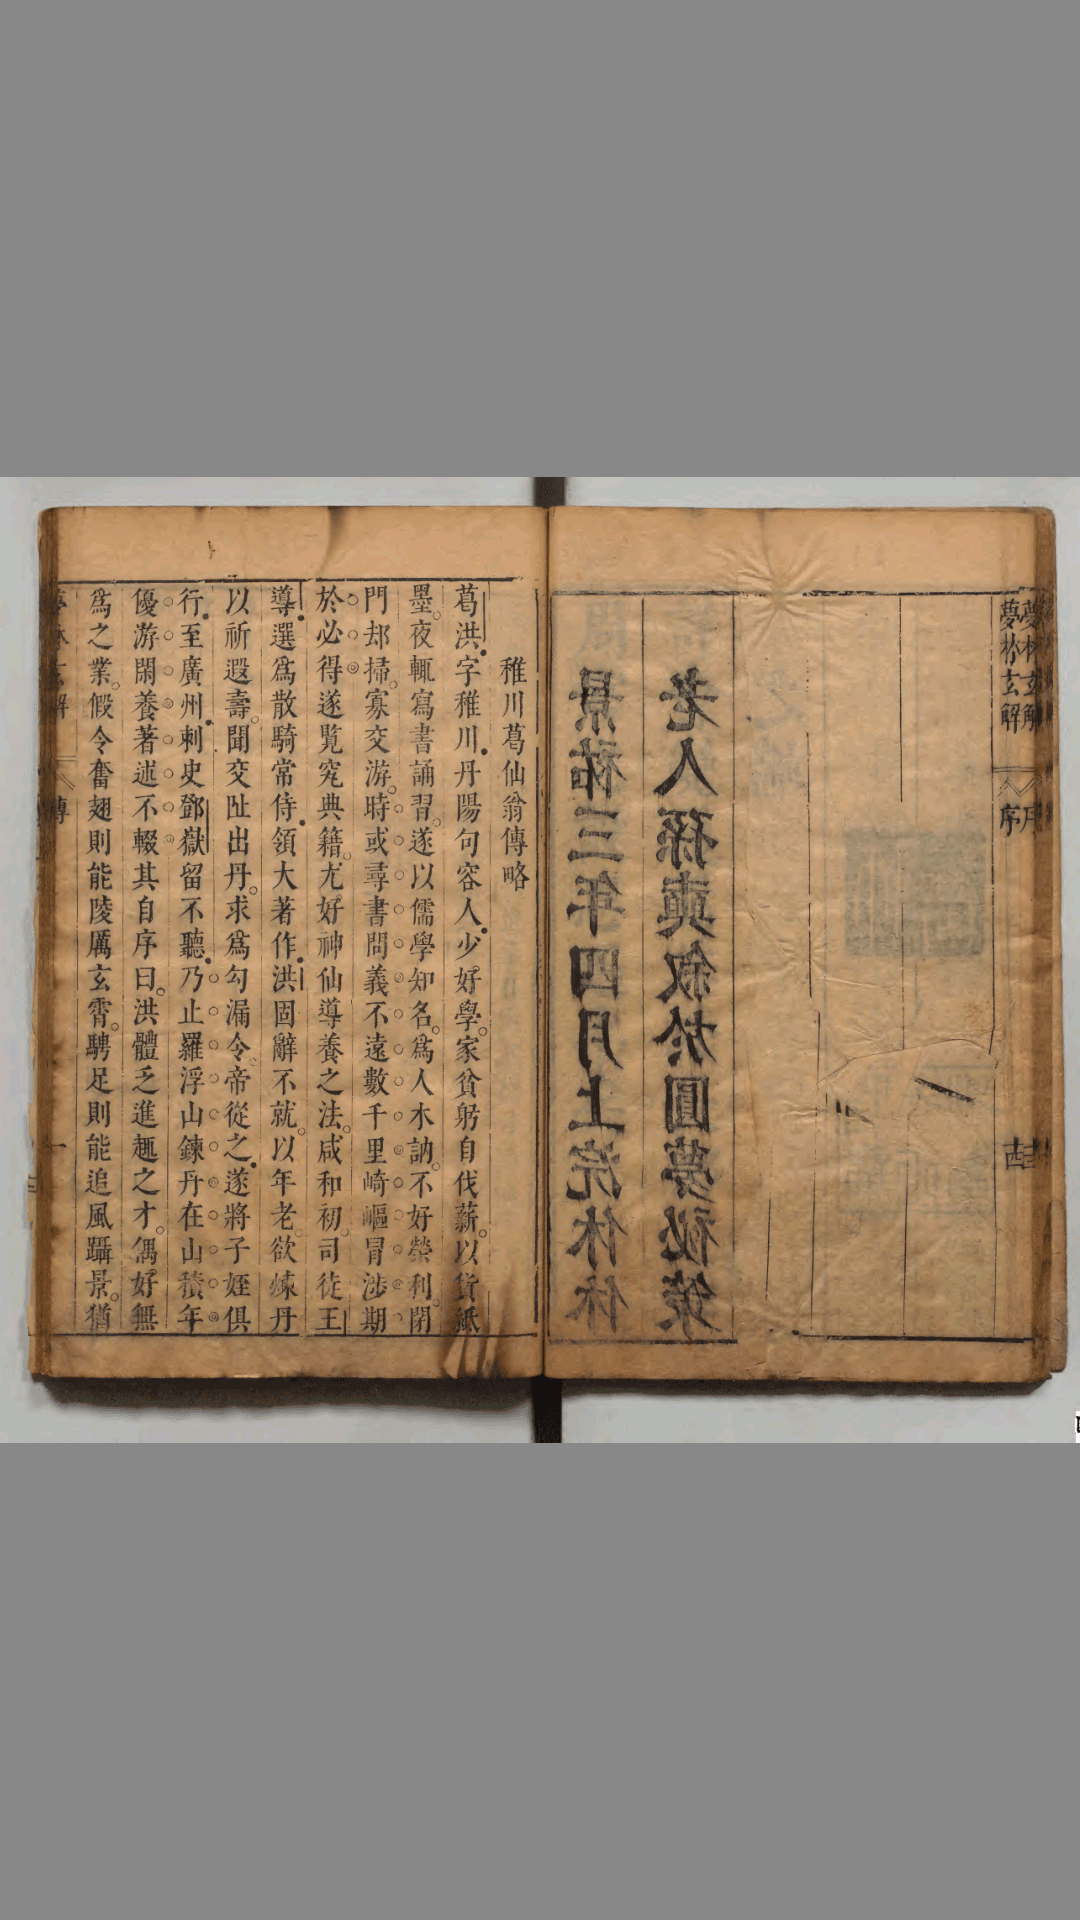 夢林玄解
序
景祐三年四月上浣休休
老人孫奭敘於圓夢祕策
稚川葛仙翁傳略
葛洪字稚川丹陽句容人少好學。家貧躬自伐薪。以貨紙
墨。夜輒寫書誦習。遂以儒學知名。爲人木訥。不好榮利。閉
門却掃。寡交游。時或尋書問義不遠數千里崎嶇冒涉期
於必得遂覧究典籍。尤好神仙導養之法。咸和初。司徒王
導選爲散騎常侍領大著作洪固辭不就。以年老。欲煉丹
以祈遐壽。聞交阯出丹。求爲勾漏令。帝從之遂將子姪俱
行至廣州刺史鄧嶽留不聽乃止羅浮山鍊丹在山積年
優游閑養著述不輟其自序曰。洪體乏進趣之才。偶好無
爲之業。假令奮翅則能陵厲玄霄。騁足則能追風躡景。猶
傳
一